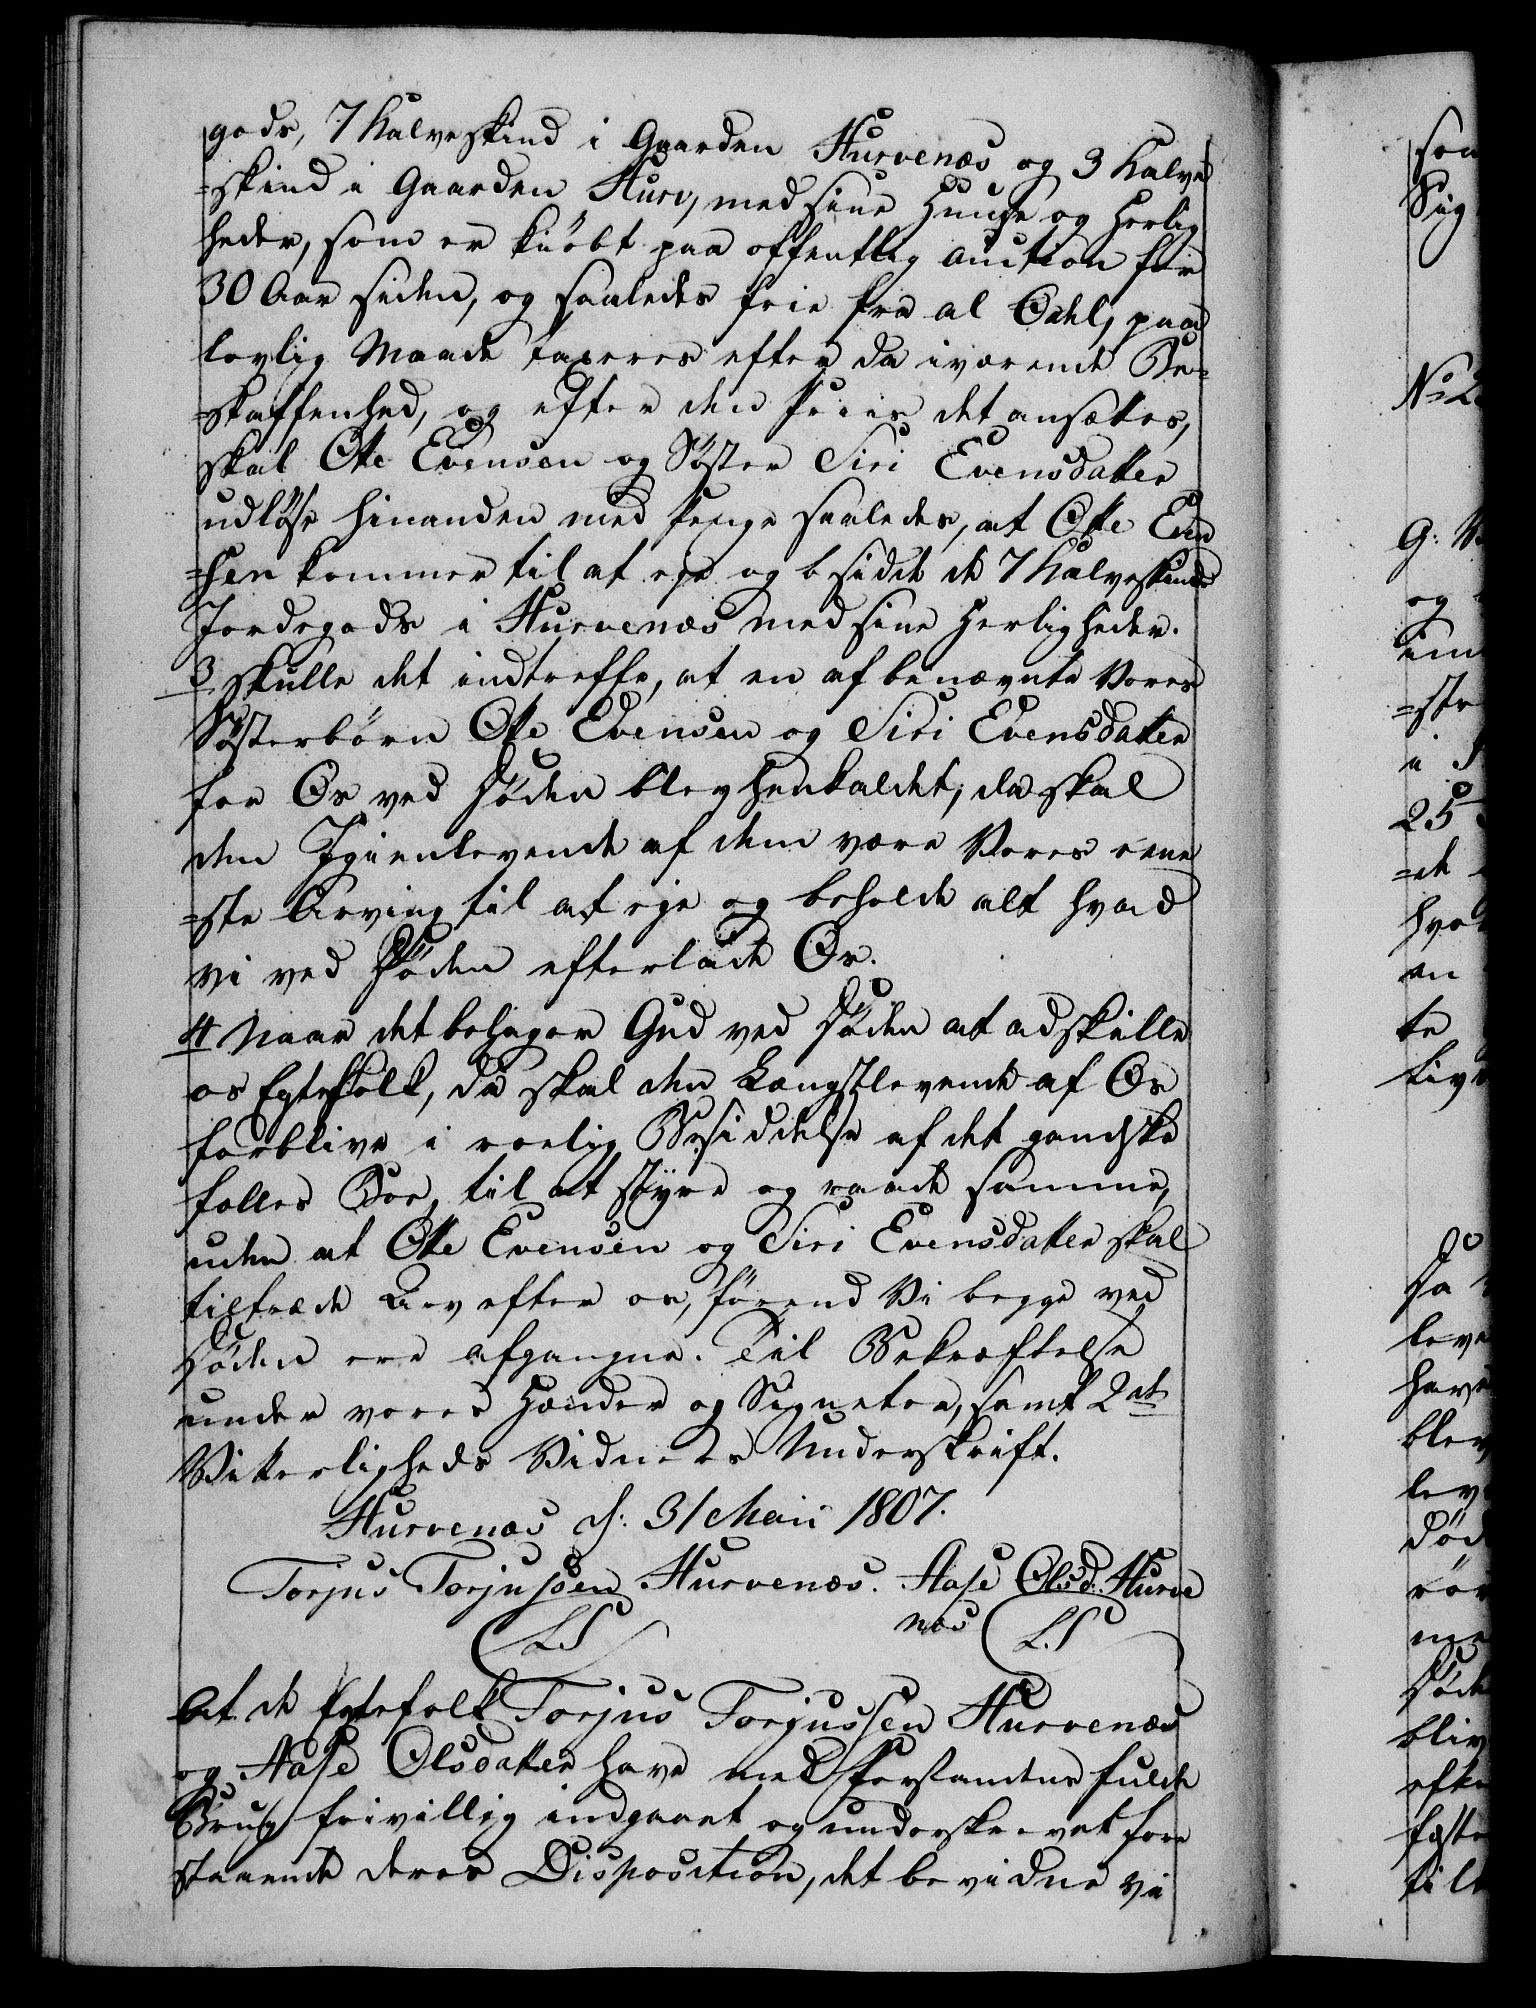 gods, 7 Kalveskind i Gaarden Hurvenæs og 3 Kalve
=skind i Gaarden Hurv, med sine Huuse og Herlig
heder, som er kiöbt paa offentlig Auction for
30 Aar siden, og saaledes frie fra al Odel, paa
lovlig Maade taxeres efter da iværende Be=
=skaffenhed, og efter den Priis det ansættes,
skal Ole Evensen og Söster Siri Evensdatter
udlöse hinanden med Penge saaledes, at Ole Even
=sen kommer til at eje og besidde de 7 Kalveskinds
Jordegods i Hurvenæs med sine Herligheder.
3 skulle det indtreffe, at en af benævnte Vores
Sösterbörn Ole Evensen og Siri Evensdatter
for Os ved Döden blev henkaldet, da skal
den Igienlevende af dem være Vores eene
=ste Arving til at eje og beholde alt hvad
vi ved Döden efterlade Os.
4 Naar det behager Gud ved Döden at adskille
os Egtefolk, da skal den Længstlevende af Os
forblive i roelig Besiddelse af det gandske
fælles Boe, til at styre og raade samme,
uden at Ole Evensen og Siri Evensdatter skal
tiltræde Arv efter os, förend Vi begge ved
Döden ere afgangne. Til Bekræftelse
under vores Hænder og Signeter, samt 2de
Vitterligheds Vidners Underskrift.
Hurvenæs d: 31 Maii 1807.
Torjus Torjussen Hurvenæs. Aase Olsd: Hurve
næs
L.S L.S
At de Egtefolk Torjus Torjussen Hurvenæs
og Aase Olsdatter have med Forstandens fulde
Brug frivillig indgaaet og underskrevet fore
staaende deres Disposition, det bevidne Vi